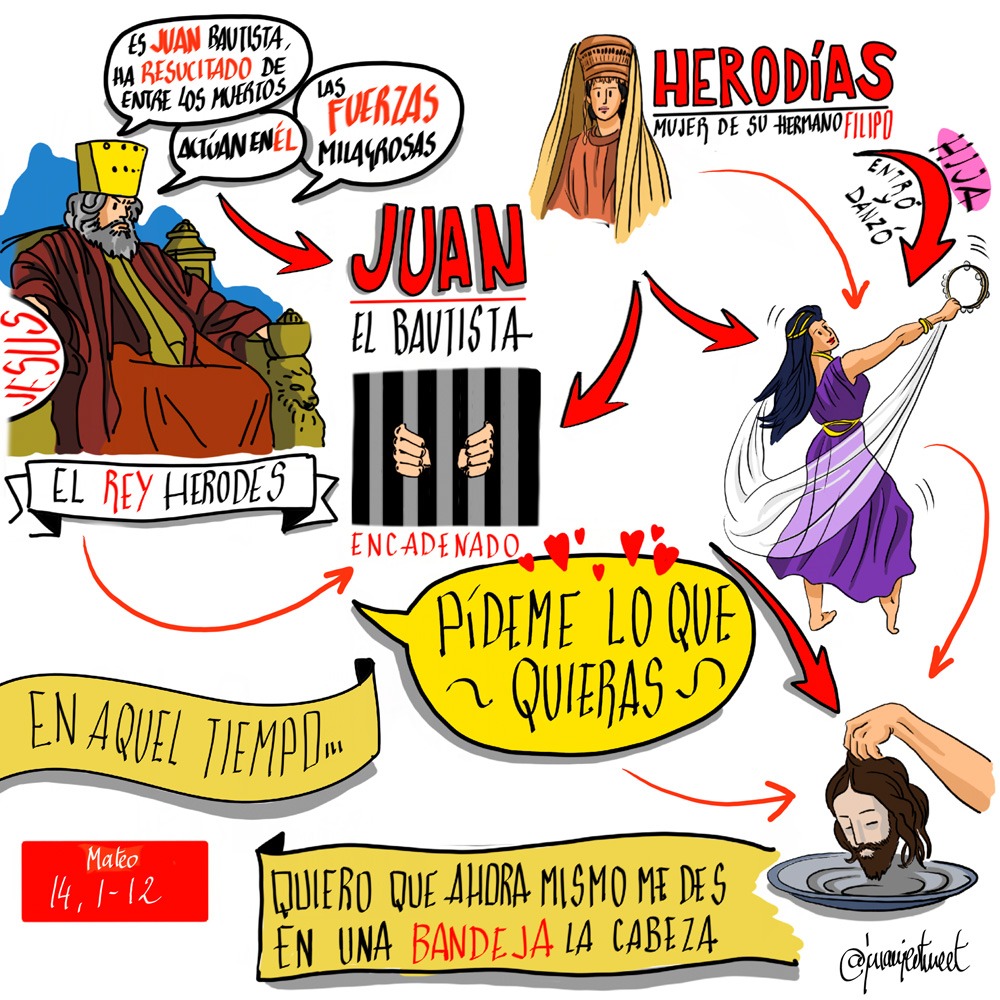 ES JUAN BAUTISTA,
HA RESUCITADO DE
ENTRE LOS MUERTOS
ACTÚAN EN ÉL
LAS
FUERZAS
MILAGROSAS
HERODÍAS
MUJER DE SU HERMANO FILIPO
HIJA
ENTRÓ
Y
DANZÓ
JUAN
EL BAUTISTA
JESUS
EL REY HERODES
ENCADENADO
PÍDEME LO QUE
QUIERAS
EN AQUEL TIEMPO...
Mateo
14, 1-12
QUIERO QUE AHORA MISMO ME DES
EN UNA BANDEJA LA CABEZA